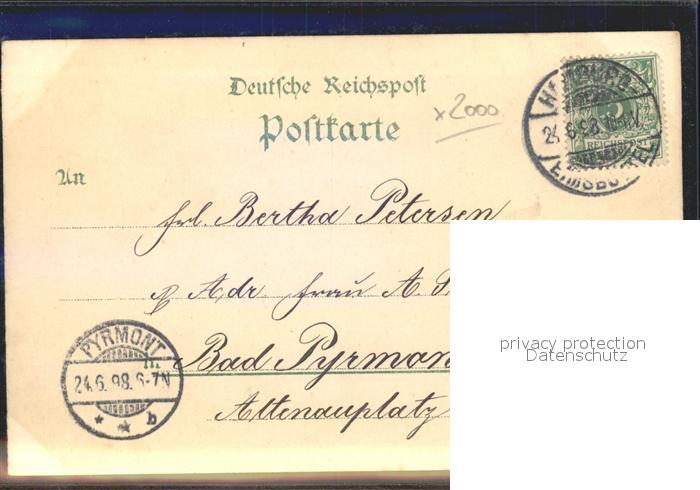 Deutsche Reichspost
Postkarte
x 2000
HAMBURG
24.6.98
EIMSBÜTTEL
REICHSPOST
An
Frl. Bertha Petersen
p Adr Frau A.
in Bad Pyrmon
Altenauplatz
PYRMONT
24.6.98.6-7N
* * b
privacy protection
Datenschutz